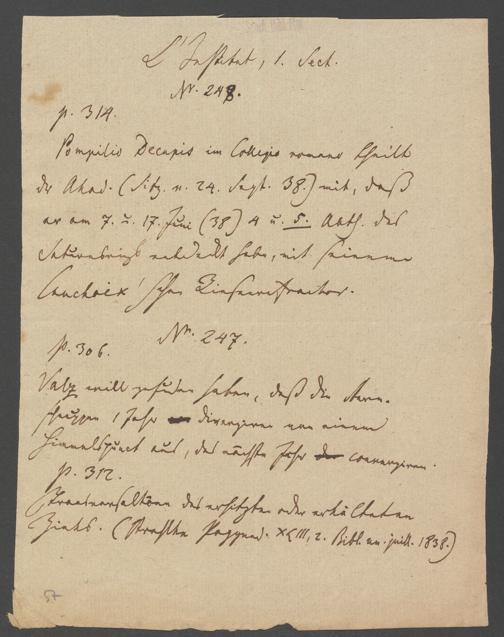 L'Institut, 1. Sect.
Nr. 248.
p. 314.
Pompilio Decuppis im Collegio romano theilt
der Akad. (Sitz. v. 24. Sept. 38.) mit, daß
er am 7. u. 17. Juni (38) 4 u. 5. Abth. des
Saturnrings entdeckt habe, mit seinem
Cauchoix'schen Riesenrefractor.
Nr. 247.
p. 306.
Valz will gefunden haben, daß die Stern-
schnuppen 1 Jahr divergiren von einem
Himmelspunct aus, das nächste Jahr convergiren.
p. 312.
des erhitzten oder erkälteten
Zinks. (Poggend. XLIII, 2. Bibl. un. juill. 1838.)
57